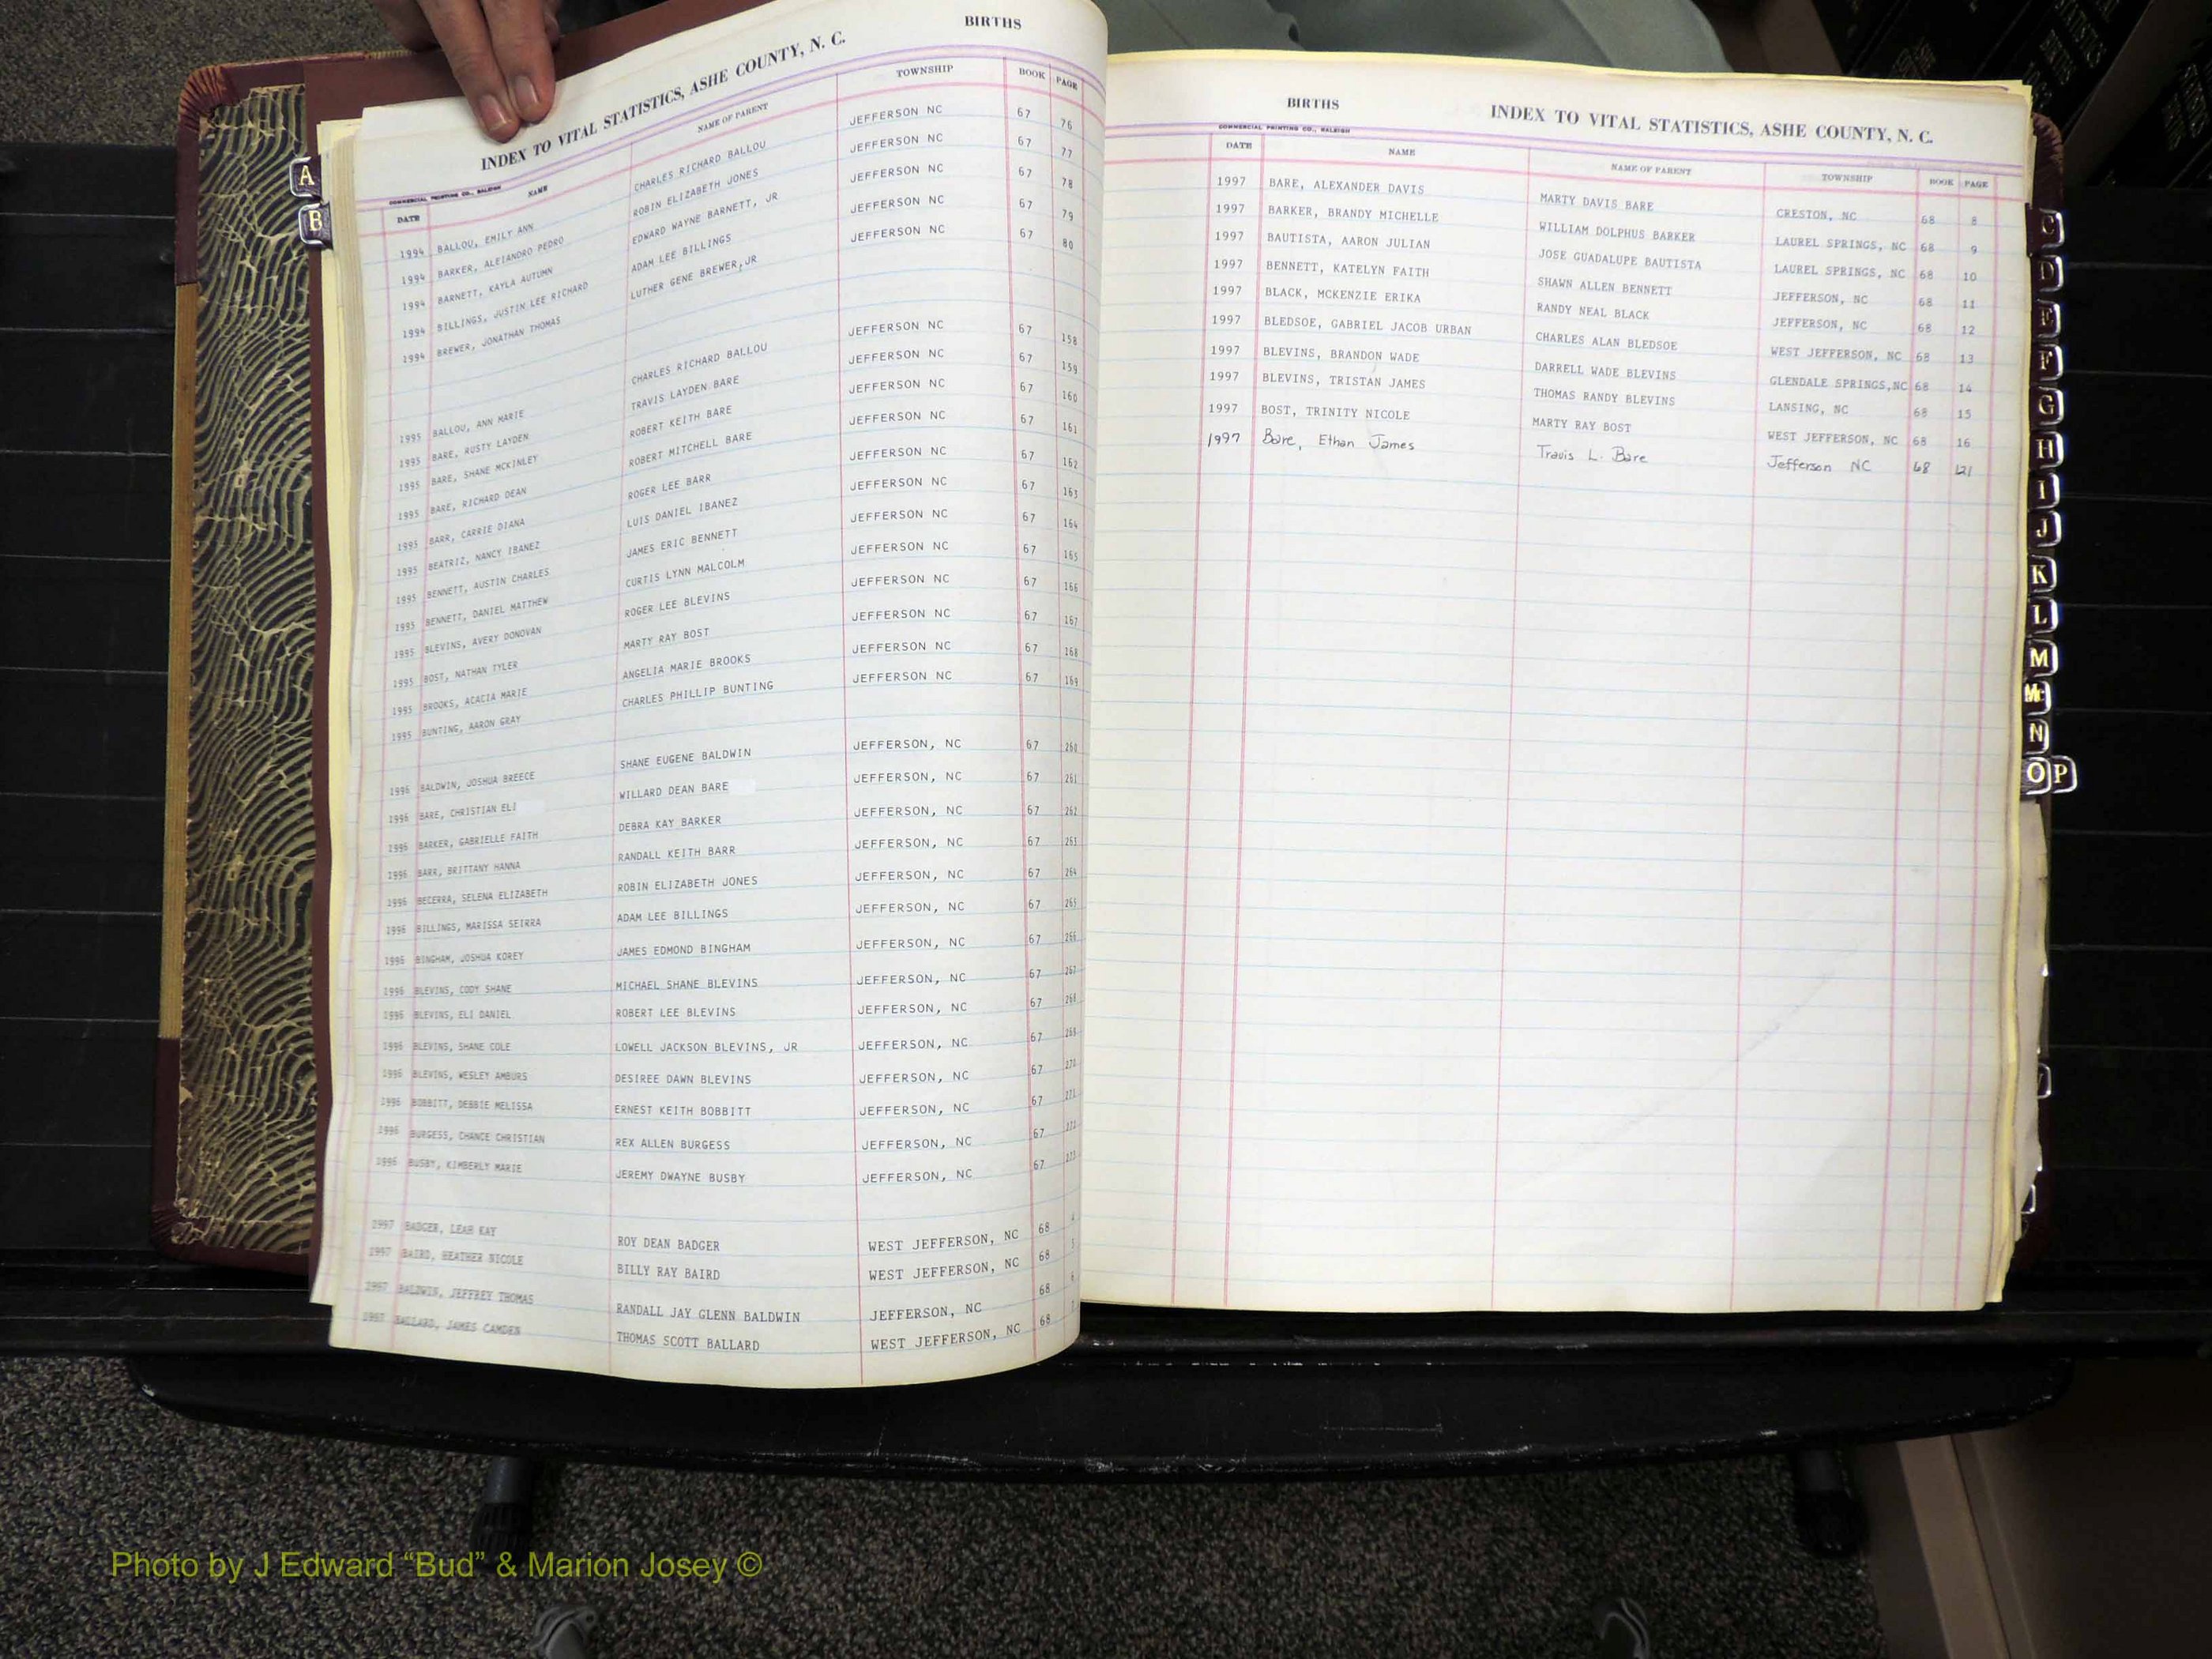 BIRTHS
INDEX TO VITAL STATISTICS, ASHE COUNTY, N. C.
COMMERCIAL PRINTING CO., RALEIGH
DATE NAME NAME OF PARENT TOWNSHIP BOOK PAGE
1994 BALLOU, EMILY ANN CHARLES RICHARD BALLOU JEFFERSON NC 67 76
1994 BARKER, ALEJANDRO PEDRO ROBIN ELIZABETH JONES JEFFERSON NC 67 77
1994 BARNETT, KAYLA AUTUMN EDWARD WAYNE BARNETT, JR JEFFERSON NC 67 78
1994 BILLINGS, JUSTIN LEE RICHARD ADAM LEE BILLINGS JEFFERSON NC 67 79
1994 BREWER, JONATHAN THOMAS LUTHER GENE BREWER,JR JEFFERSON NC 67 80
1995 BALLOU, ANN MARIE CHARLES RICHARD BALLOU JEFFERSON NC 67 158
1995 BARE, RUSTY LAYDEN TRAVIS LAYDEN BARE JEFFERSON NC 67 159
1995 BARE, SHANE MCKINLEY ROBERT KEITH BARE JEFFERSON NC 67 160
1995 BARE, RICHARD DEAN ROBERT MITCHELL BARE JEFFERSON NC 67 161
1995 BARR, CARRIE DIANA ROGER LEE BARR JEFFERSON NC 67 162
1995 BEATRIZ, NANCY IBANEZ LUIS DANIEL IBANEZ JEFFERSON NC 67 163
1995 BENNETT, AUSTIN CHARLES JAMES ERIC BENNETT JEFFERSON NC 67 164
1995 BENNETT, DANIEL MATTHEW CURTIS LYNN MALCOLM JEFFERSON NC 67 165
1995 BLEVINS, AVERY DONOVAN ROGER LEE BLEVINS JEFFERSON NC 67 166
1995 BOST, NATHAN TYLER MARTY RAY BOST JEFFERSON NC 67 167
1995 BROOKS, ACACIA MARIE ANGELIA MARIE BROOKS JEFFERSON NC 67 168
1995 BUNTING, AARON GRAY CHARLES PHILLIP BUNTING JEFFERSON NC 67 169
1996 BALDWIN, JOSHUA BREECE SHANE EUGENE BALDWIN JEFFERSON, NC 67 260
1996 BARE, CHRISTIAN ELI WILLARD DEAN BARE JEFFERSON, NC 67 261
1996 BARKER, GABRIELLE FAITH DEBRA KAY BARKER JEFFERSON, NC 67 262
1996 BARR, BRITTANY HANNA RANDALL KEITH BARR JEFFERSON, NC 67 263
1996 BECERRA, SELENA ELIZABETH ROBIN ELIZABETH JONES JEFFERSON, NC 67 264
1996 BILLINGS, MARISSA SEIRRA ADAM LEE BILLINGS JEFFERSON, NC 67 265
1996 BINGHAM, JOSHUA KOREY JAMES EDMOND BINGHAM JEFFERSON, NC 67 266
1996 BLEVINS, CODY SHANE MICHAEL SHANE BLEVINS JEFFERSON, NC 67 267
1996 BLEVINS, ELI DANIEL ROBERT LEE BLEVINS JEFFERSON, NC 67 268
1996 BLEVINS, SHANE COLE LOWELL JACKSON BLEVINS, JR JEFFERSON, NC 67 269
1996 BLEVINS, WESLEY AMBURS DESIREE DAWN BLEVINS JEFFERSON, NC 67 270
1996 BOBBITT, DEBBIE MELISSA ERNEST KEITH BOBBITT JEFFERSON, NC 67 271
1996 BURGESS, CHANCE CHRISTIAN REX ALLEN BURGESS JEFFERSON, NC 67 272
1996 BUSBY, KIMBERLY MARIE JEREMY DWAYNE BUSBY JEFFERSON, NC 67 273
1997 BADGER, LEAH KAY ROY DEAN BADGER WEST JEFFERSON, NC 68 4
1997 BAIRD, HEATHER NICOLE BILLY RAY BAIRD WEST JEFFERSON, NC 68 5
1997 BALDWIN, JEFFREY THOMAS RANDALL JAY GLENN BALDWIN JEFFERSON, NC 68 6
1997 BALLARD, JAMES CAMDEN THOMAS SCOTT BALLARD WEST JEFFERSON, NC 68 7
BIRTHS
INDEX TO VITAL STATISTICS, ASHE COUNTY, N. C.
COMMERCIAL PRINTING CO., RALEIGH
DATE NAME NAME OF PARENT TOWNSHIP BOOK PAGE
1997 BARE, ALEXANDER DAVIS MARTY DAVIS BARE CRESTON, NC 68 8
1997 BARKER, BRANDY MICHELLE WILLIAM DOLPHUS BARKER LAUREL SPRINGS, NC 68 9
1997 BAUTISTA, AARON JULIAN JOSE GUADALUPE BAUTISTA LAUREL SPRINGS, NC 68 10
1997 BENNETT, KATELYN FAITH SHAWN ALLEN BENNETT JEFFERSON, NC 68 11
1997 BLACK, MCKENZIE ERIKA RANDY NEAL BLACK JEFFERSON, NC 68 12
1997 BLEDSOE, GABRIEL JACOB URBAN CHARLES ALAN BLEDSOE WEST JEFFERSON, NC 68 13
1997 BLEVINS, BRANDON WADE DARRELL WADE BLEVINS GLENDALE SPRINGS,NC 68 14
1997 BLEVINS, TRISTAN JAMES THOMAS RANDY BLEVINS LANSING, NC 68 15
1997 BOST, TRINITY NICOLE MARTY RAY BOST WEST JEFFERSON, NC 68 16
1997 Bare, Ethan James Travis L. Bare Jefferson NC 68 121
A
B
C
D
E
F
G
H
I
J
K
L
M
Mc
N
O P
Photo by J Edward “Bud” & Marion Josey ©